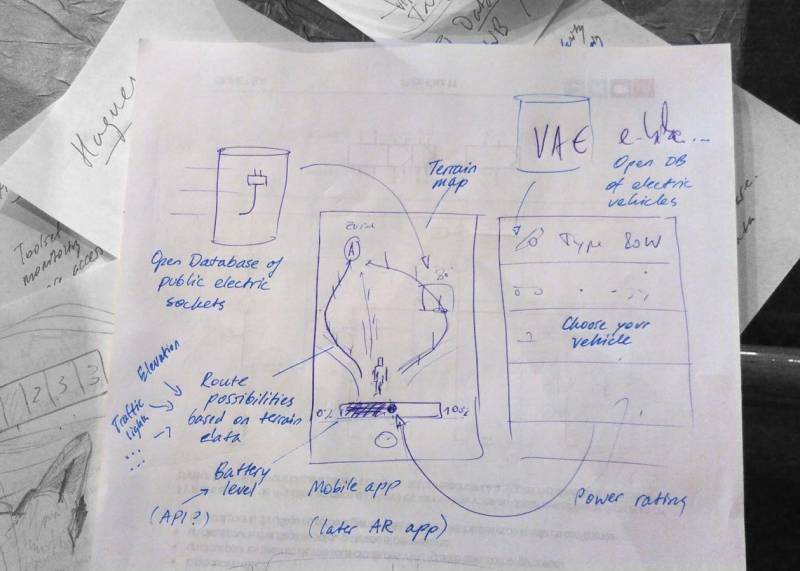 Hague
Toolset
monitoring
access
Terrain
map
VAE
Open DB
of electric
vehicles
Open Database of
public electric
sockets
A
8°
Type 80W
Choose your
vehicle
Elevation
Traffic
lights
...
Route
possibilities
based on terrain
data
0%
100%
Battery
level
(API?)
Mobile app
(later AR app)
Power rating
2 3 3